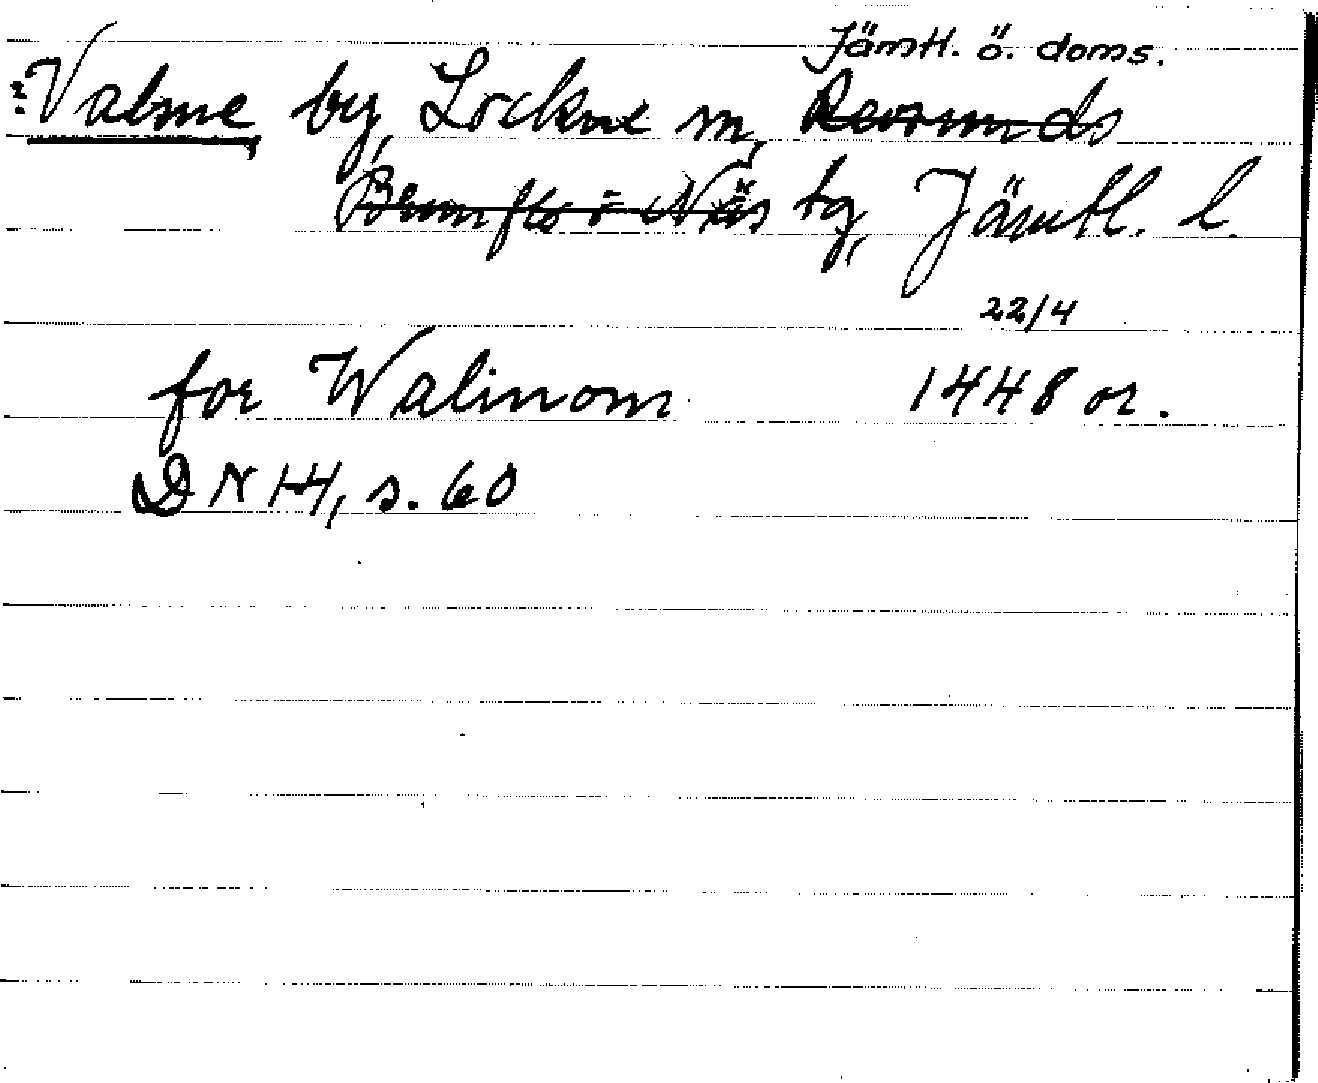 Jämtl. ö. doms.
Valme by, Lockne sn, Revsunds
Brunflo o Näs tg, Jämtl. l.
22/4
for Walinom 1448 or.
DN 14, s. 60